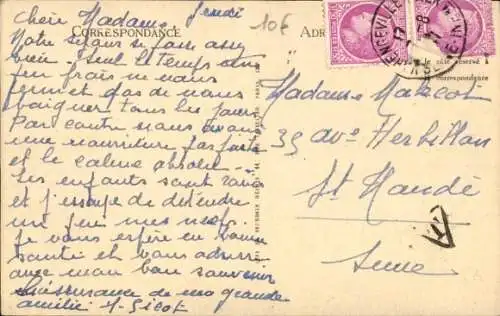 Jeudi
Chère Madame
10F
CORRESPONDANCE
Notre séjour se fait assez
bien. Seul le temps un
peu frais ne nous
permet pas de nous
baigner tous les jours
Par contre nous avons
une nourriture parfaite
et le calme absolu
Les enfants sont ravis
et j'essaye de détendre
un peu mes nerfs.
Je vous espère en bonne
santé et vous adresse
avec mon bon souvenir
l'assurance de ma grande
amitié
Madame
35 ave Herbillon
St Mandé
Seine